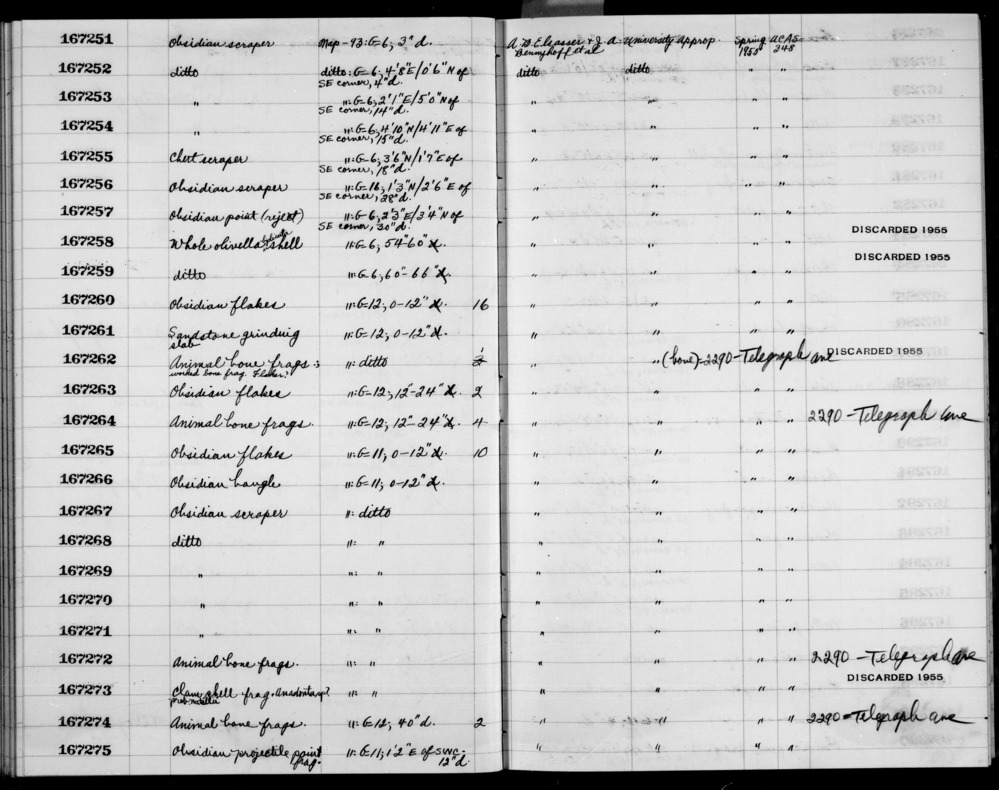 167251 Obsidian scraper Nap-93: G-6; 3" d. A. B. Elsasser & J. A. Bennyhoff et al University Approp. Spring 1955 UCAS-348
167252 ditto ditto: G-6; 4'8"E/0'6"N of SE corner, 4"d. ditto ditto " "
167253 " ": G-6; 2'1"E/5'0"N of SE corner, 14"d. " " " "
167254 " ": G-6; 4'10"N/4'11"E of SE corner, 15"d. " " " "
167255 Chert scraper ": G-6; 3'6"N/1'7"E of SE corner, 18"d. " " " "
167256 Obsidian scraper ": G-16; 1'3"N/2'6"E of SE corner, 28"d. " " " "
167257 Obsidian point (reject) ": G-6; 2'3"E/3'4"N of SE corner, 30"d. " " " "
167258 Whole olivella biplicata shell ": G-6; 54"-60" " " " " DISCARDED 1955
167259 ditto ": G-6; 60"-66" " " " " DISCARDED 1955
167260 Obsidian flakes ": G-12; 0-12" 16 " " " "
167261 Sandstone grinding slab ": G-12; 0-12" " " " "
167262 Animal bone frags.; worked bone frag. Flaker? ": ditto 1 " " (bone)-2290-Telegraph ave DISCARDED 1955
167263 Obsidian flakes ": G-12; 12"-24" 2 " " " "
167264 Animal bone frags. ": G-12; 12"-24" 4 " " " " 2290-Telegraph ave
167265 Obsidian flakes ": G-11; 0-12" 10 " " " "
167266 Obsidian bangle ": G-11; 0-12" " " " "
167267 Obsidian scraper ": ditto " " " "
167268 ditto ": " " " " "
167269 " ": " " " " "
167270 " ": " " " " "
167271 " ": " " " " "
167272 Animal bone frags. ": " " " " " 2290-Telegraph ave
167273 Clam shell frag. Anadonta sp? ": " " " " " DISCARDED 1955
167274 Animal bone frags. ": G-12; 40"d. 2 " " " " 2290-Telegraph ave
167275 Obsidian projectile point frag. ": G-11; 1'2"E of SWC; 12"d. " " " "